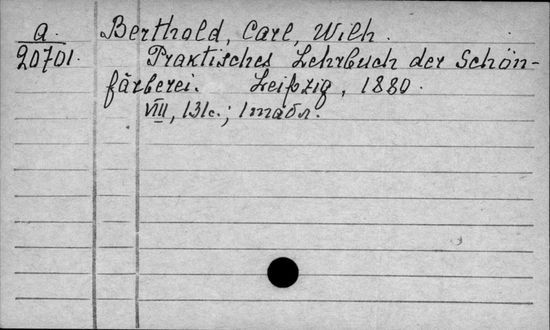 a. Berthold, Carl, Wilh.
20701. Praktisches Lehrbuch der Schön-
färberei. Leipzig, 1880.
VIII, 131c.; 1 табл.